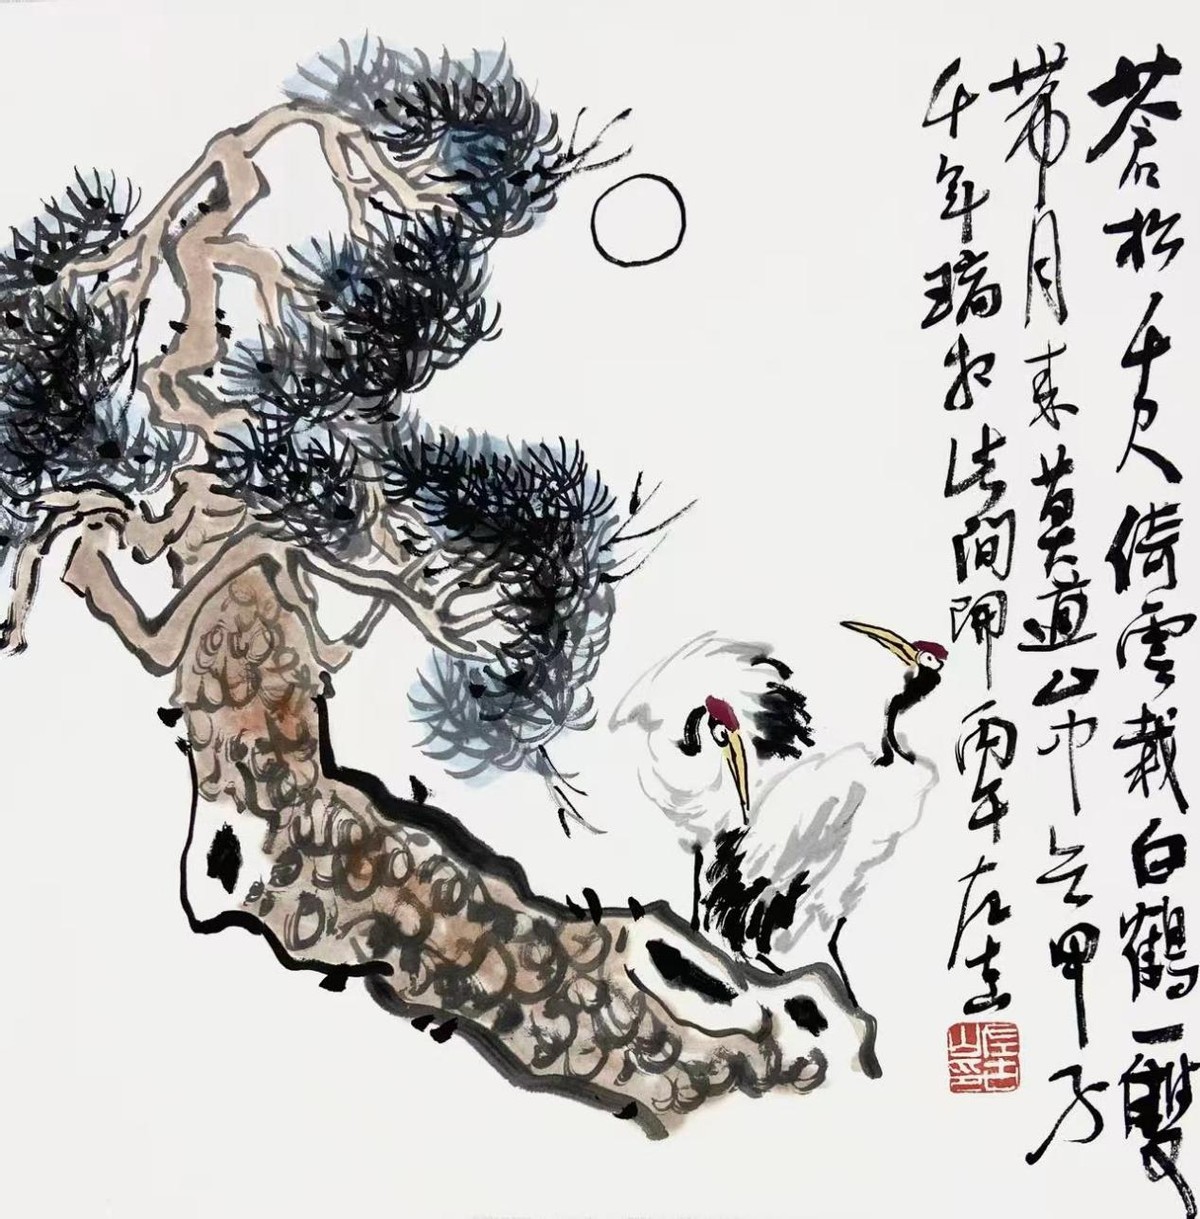 蒼松千尺倚雲栽白鶴一雙
帶月来莫道山中无甲子
千年瑞相此間開丙午左吉